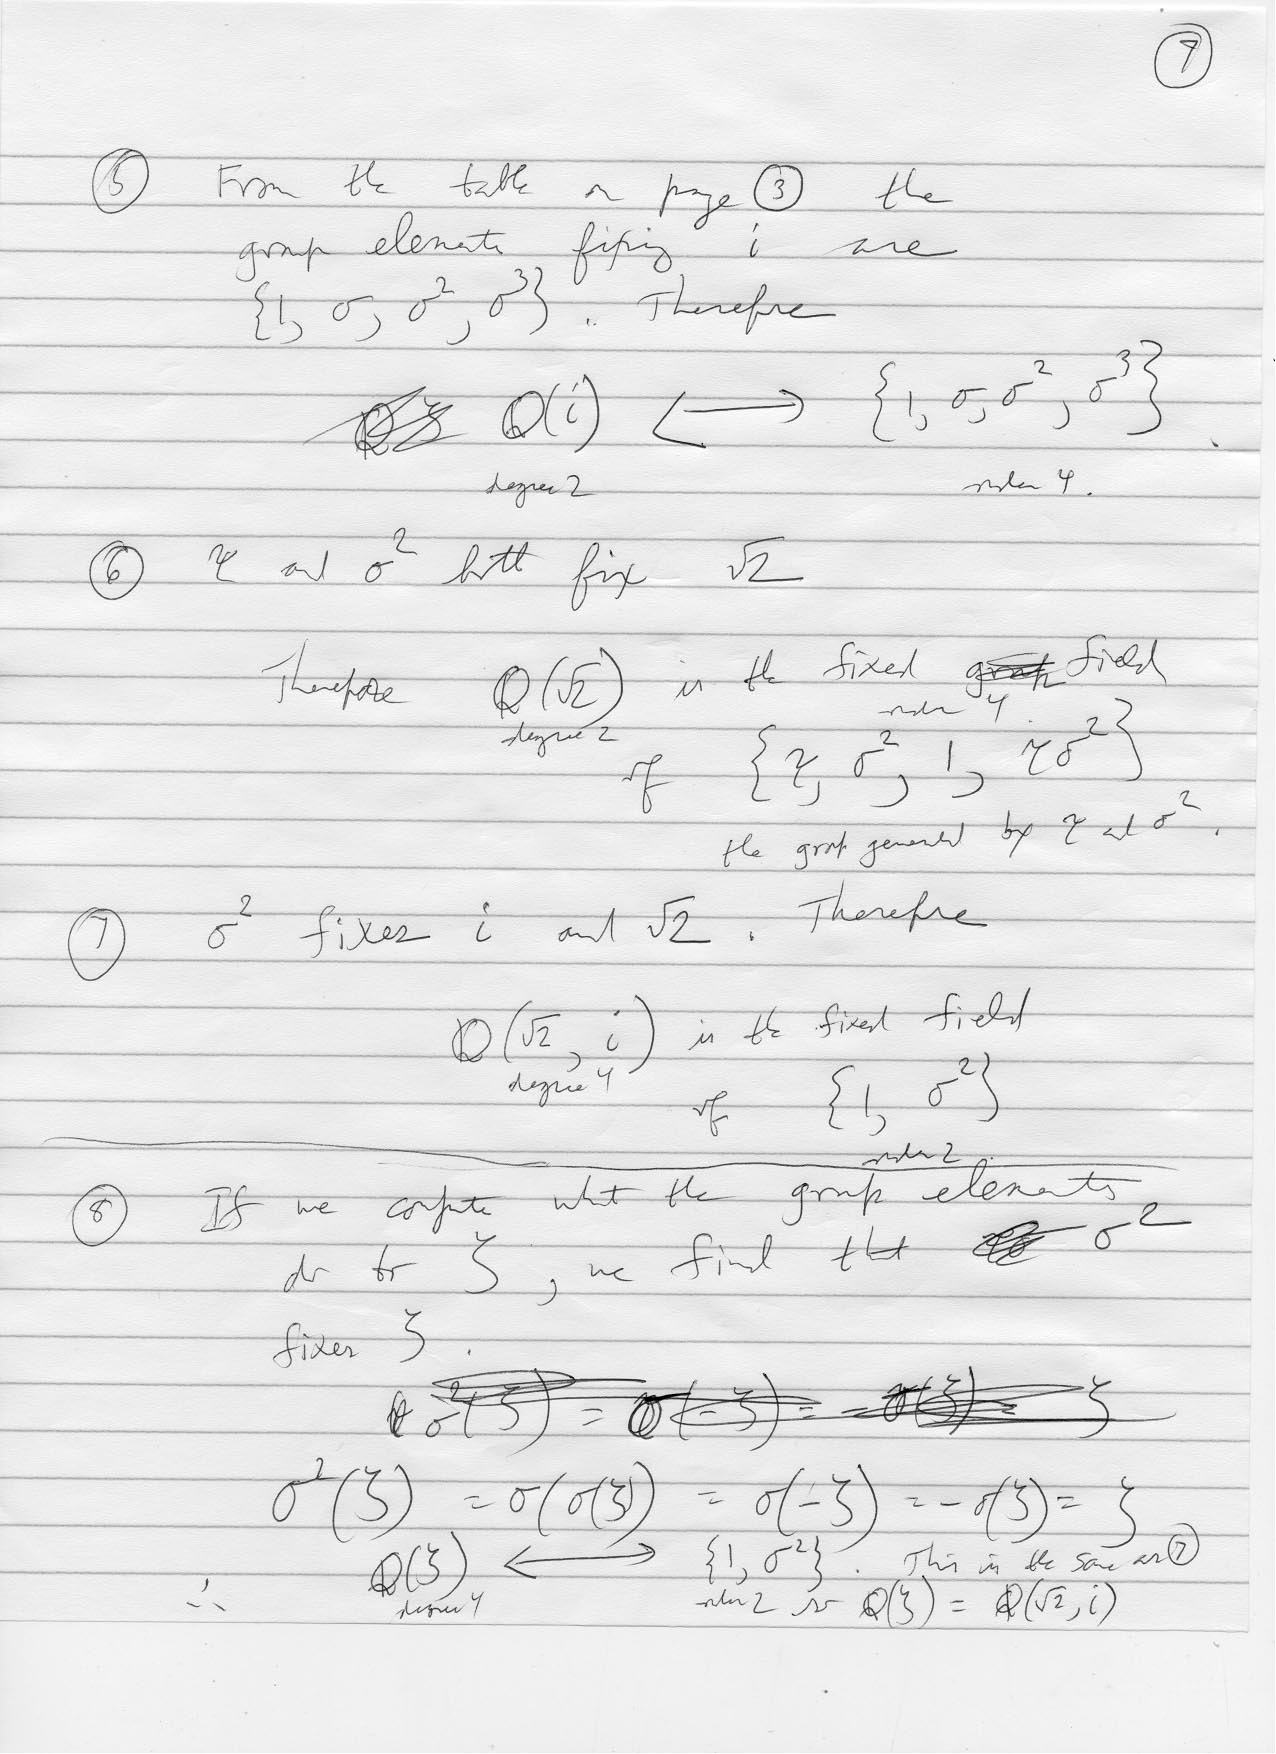 7
5 From the table on page 3 the
group elements fixing i are
{1, σ, σ², σ³}. Therefore
Q(i) ⟷ {1, σ, σ², σ³}.
degree 2 order 4.
6 τ and σ² both fix √2
Therefore Q(√2) is the fixed field
degree 2 order 4.
of {τ, σ², 1, τσ²}
the group generated by τ and σ².
7 σ² fixes i and √2. Therefore
Q(√2, i) is the fixed field
degree 4
of {1, σ²}
order 2.
8 If we compute what the group elements
do to ζ, we find that σ²
fixes ζ.
σ²(ζ) = σ(-ζ) = -σ(ζ) = ζ
σ²(ζ) = σ(σ(ζ)) = σ(-ζ) = -σ(ζ) = ζ
∴ Q(ζ) ⟷ {1, σ²}. This is the same as 7
degree 4 order 2 so Q(ζ) = Q(√2, i)